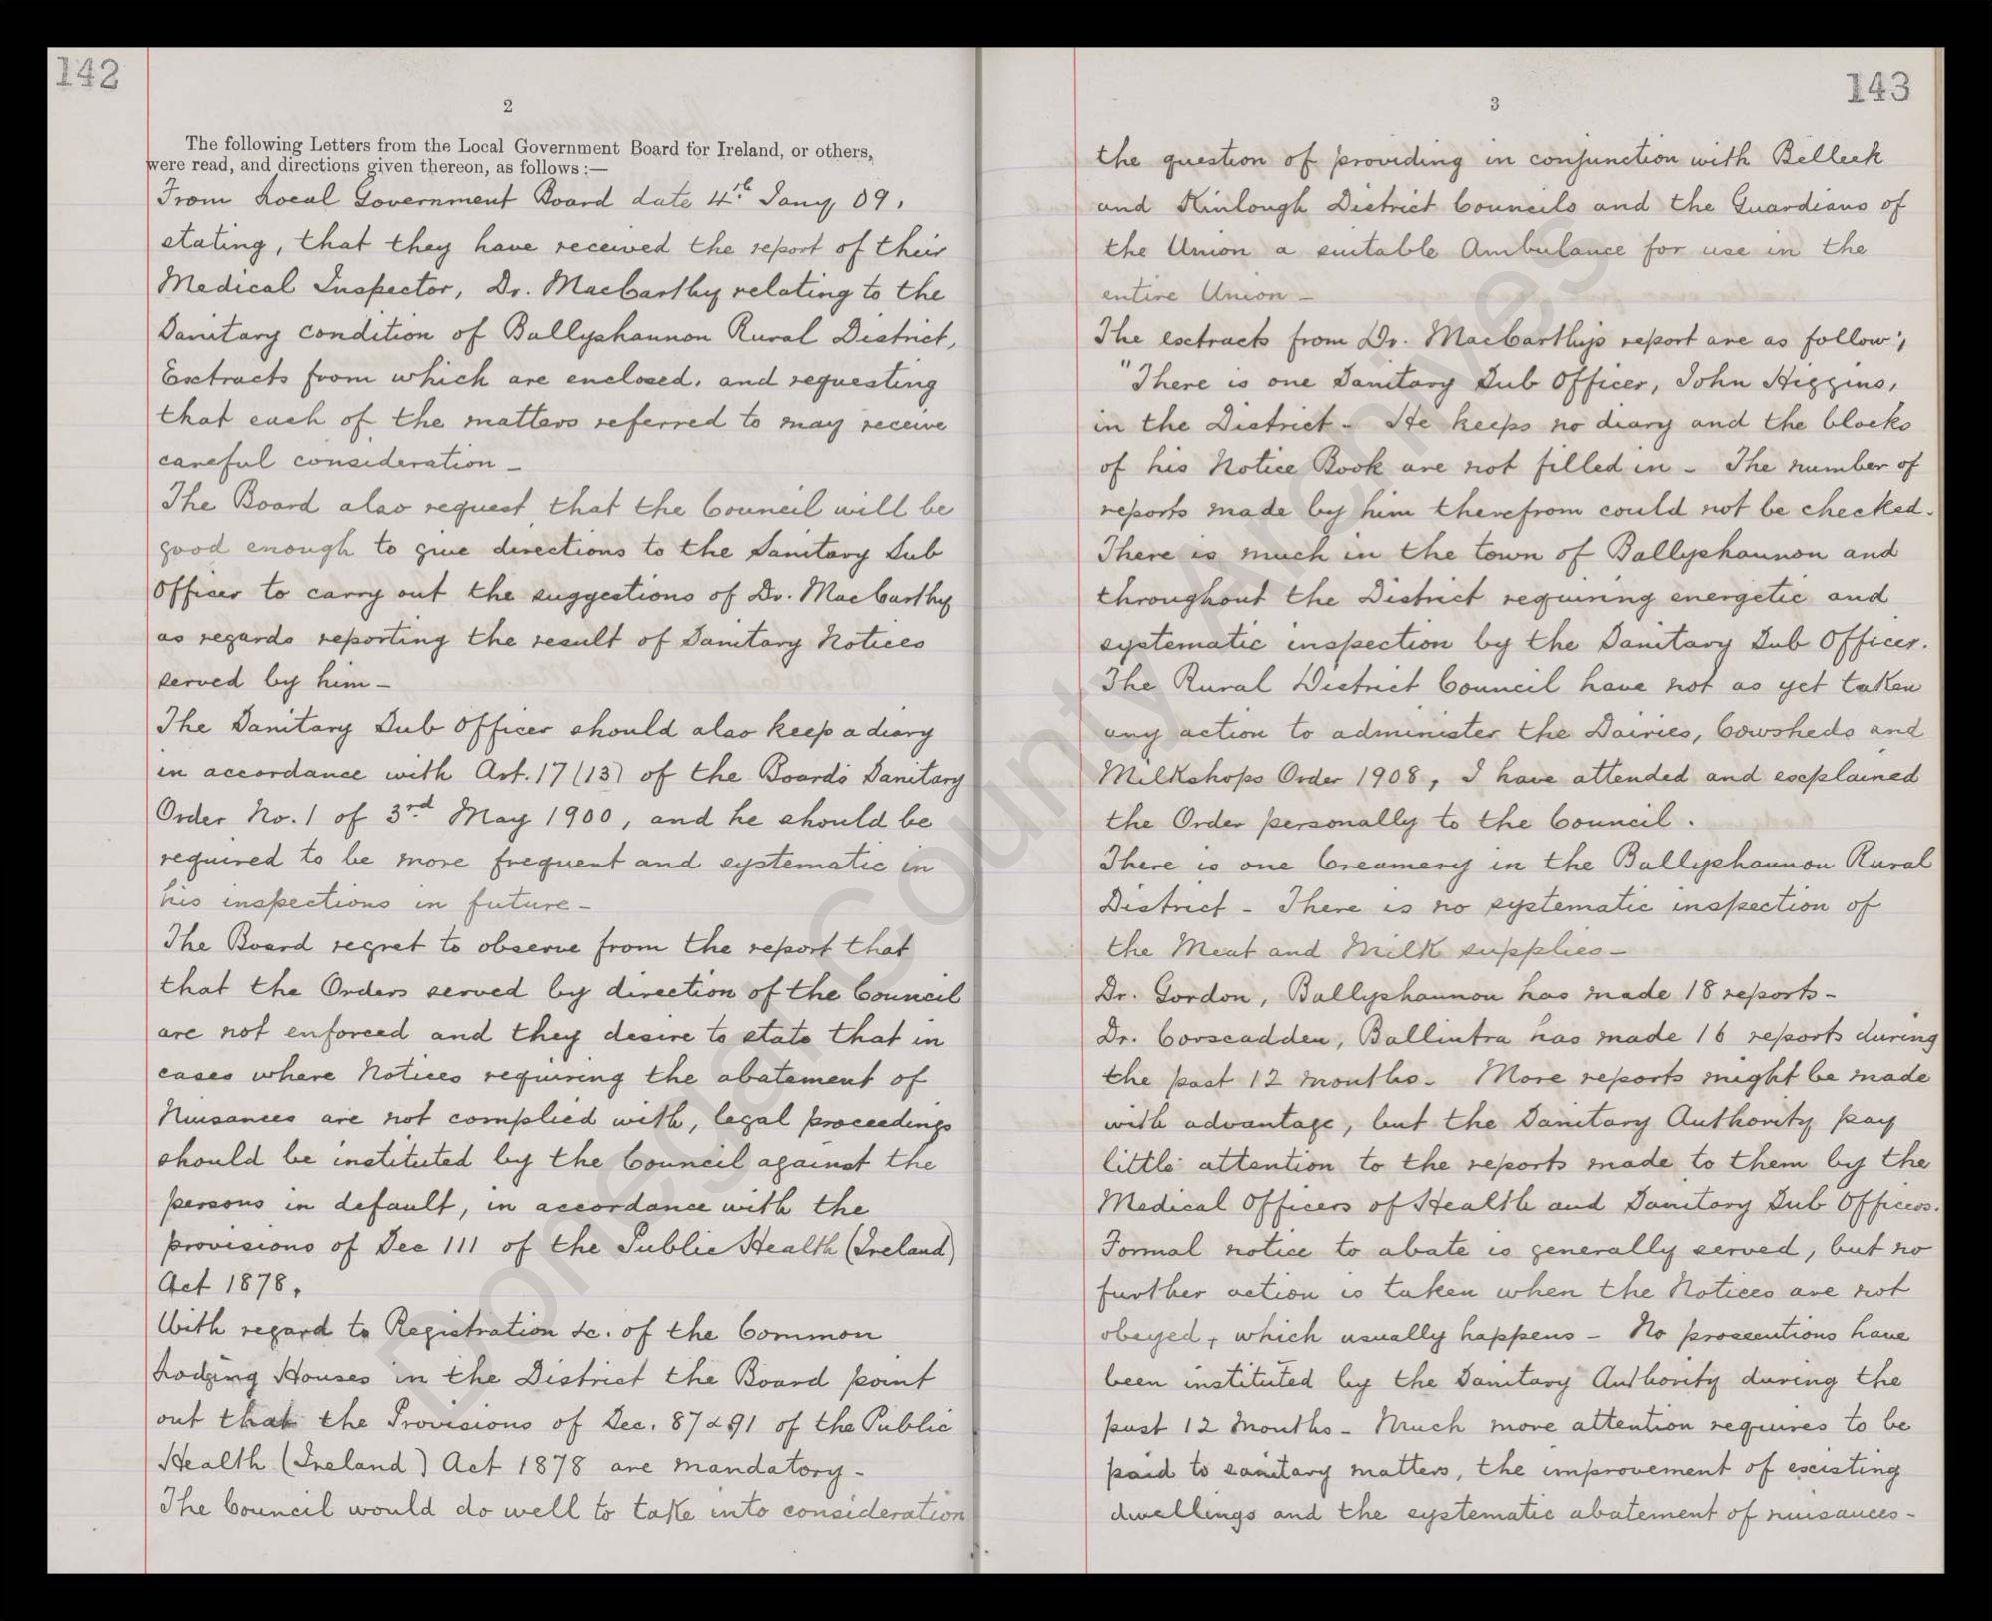 142
2
The following Letters from the Local Government Board for Ireland, or others,
were read, and directions given thereon, as follows:—
From Local Government Board date 4th Jany 09,
stating, that they have received the report of their
Medical Inspector, Dr. MacCarthy relating to the
Sanitary condition of Ballyshannon Rural District,
Extracts from which are enclosed, and requesting
that each of the matters referred to may receive
careful consideration -
The Board also request that the Council will be
good enough to give directions to the Sanitary Sub
Officer to carry out the suggestions of Dr. MacCarthy
as regards reporting the result of Sanitary Notices
served by him -
The Sanitary Sub Officer should also keep a diary
in accordance with Art. 17 (13) of the Board's Sanitary
Order No. 1 of 3rd May 1900, and he should be
required to be more frequent and systematic in
his inspections in future -
The Board regret to observe from the report that
that the Orders served by direction of the Council
are not enforced and they desire to state that in
cases where Notices requiring the abatement of
Nuisances are not complied with, legal proceedings
should be instituted by the Council against the
persons in default, in accordance with the
provisions of Sec 111 of the Public Health (Ireland)
Act 1878.
With regard to Registration &c. of the Common
Lodging Houses in the District the Board point
out that the Provisions of Sec. 87 & 91 of the Public
Health (Ireland) Act 1878 are mandatory -
The Council would do well to take into consideration
143
3
the question of providing in conjunction with Belleek
and Kinlough District Councils and the Guardians of
the Union a suitable Ambulance for use in the
entire Union -
The extracts from Dr. MacCarthy's report are as follow;
"There is one Sanitary Sub Officer, John Higgins,
in the District - He keeps no diary and the blocks
of his Notice Book are not filled in - The number of
reports made by him therefrom could not be checked.
There is much in the town of Ballyshannon and
throughout the District requiring energetic and
systematic inspection by the Sanitary Sub Officer.
The Rural District Council have not as yet taken
any action to administer the Dairies, Cowsheds and
Milkshops Order 1908, I have attended and explained
the Order personally to the Council.
There is one Creamery in the Ballyshannon Rural
District - There is no systematic inspection of
the Meat and Milk supplies -
Dr. Gordon, Ballyshannon has made 18 reports -
Dr. Corscadden, Ballintra has made 16 reports during
the past 12 months - More reports might be made
with advantage, but the Sanitary Authority pay
little attention to the reports made to them by the
Medical Officers of Health and Sanitary Sub Officers.
Formal notice to abate is generally served, but no
further action is taken when the Notices are not
obeyed, which usually happens - No prosecutions have
been instituted by the Sanitary Authority during the
past 12 Months - Much more attention requires to be
paid to sanitary matters, the improvement of existing
dwellings and the systematic abatement of nuisances -
Donegal County Archives